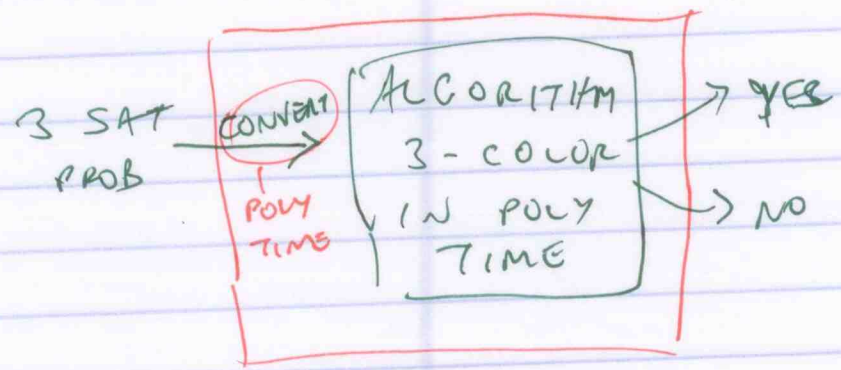 3 SAT
PROB
CONVERT
POLY
TIME
ALGORITHM
3-COLOR
IN POLY
TIME
YES
NO